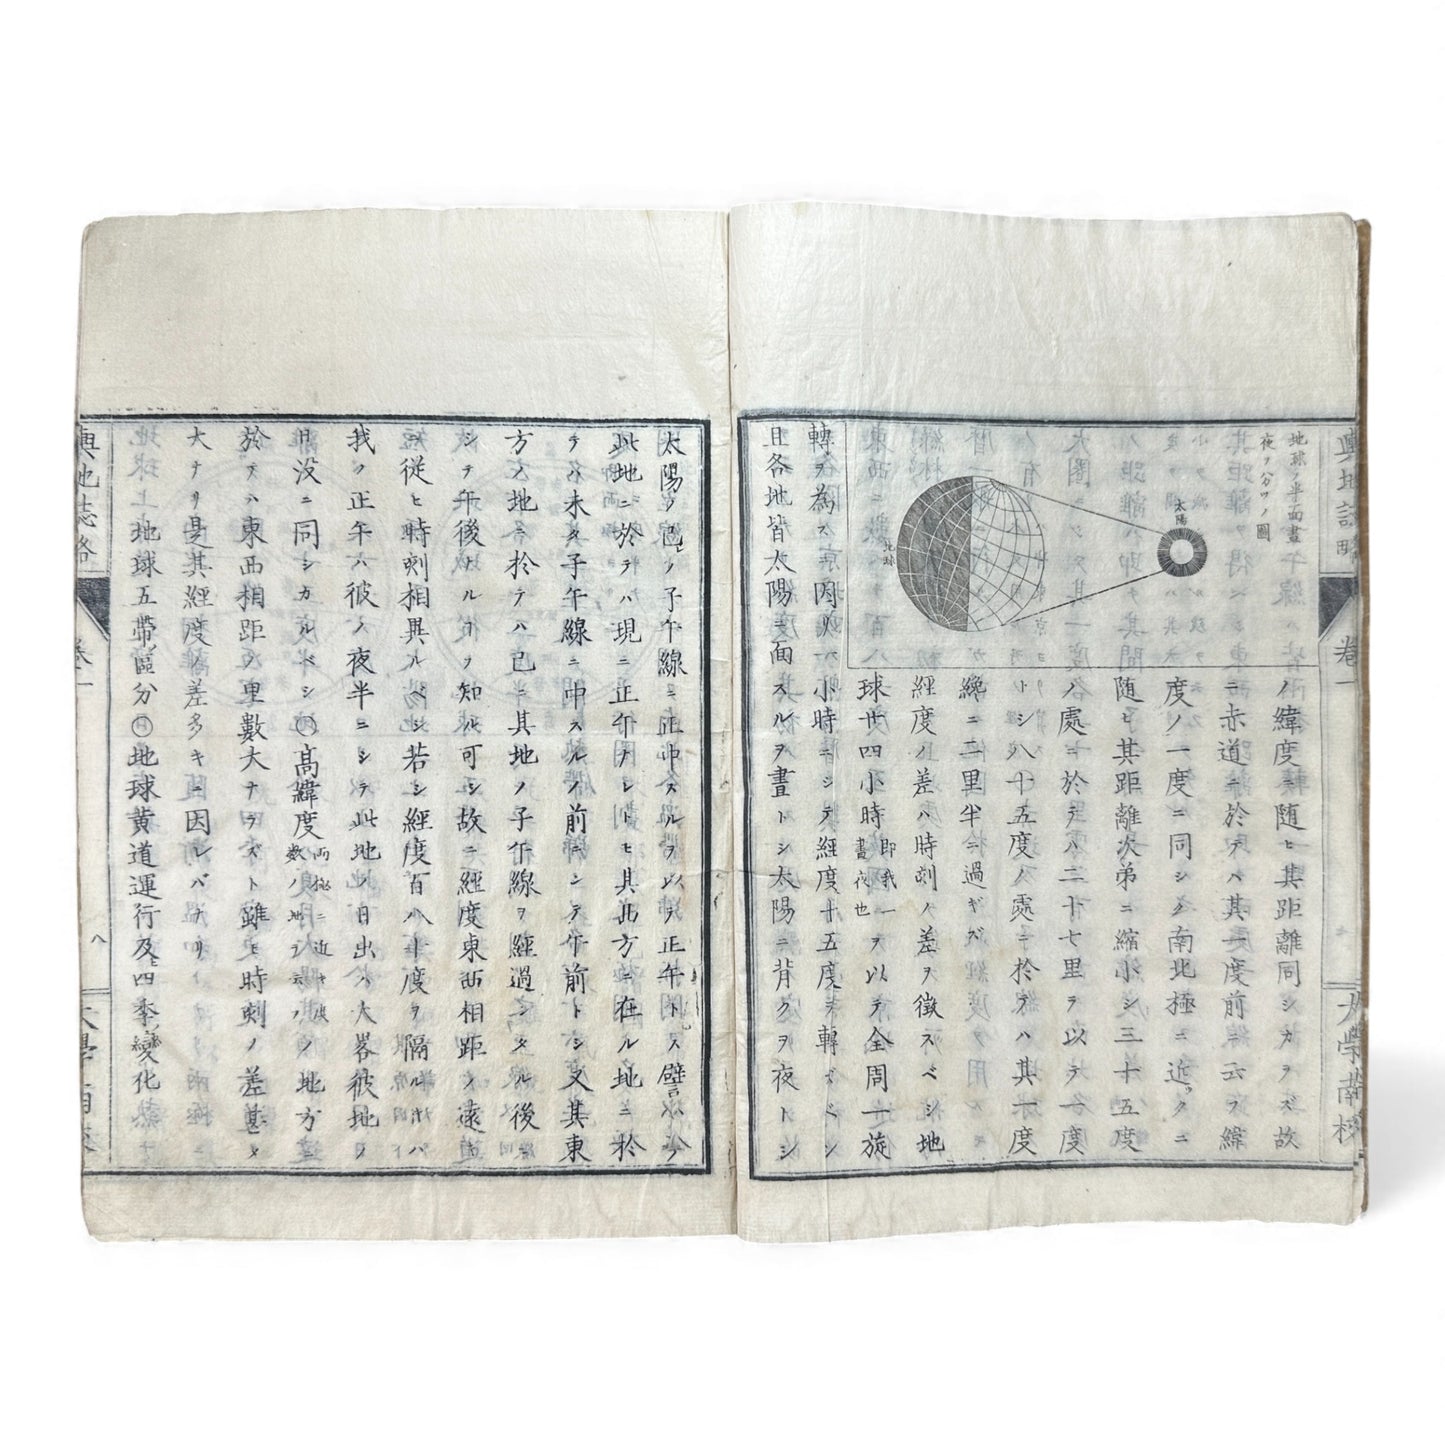 輿地誌略
巻一
大學南校
地球ノ半面晝
夜ヲ分ツノ圖
太陽
地球
ノ緯度ニ随ヒ其距離同シカラズ故
ニ赤道ニ於テハ其度前ニ云フ緯
度ノ一度ニ同シク南北極ニ近ヅクニ
随ヒ其距離次弟ニ縮小シ三十五度
ノ處ニ於テハ二十七里ヲ以テ一度
トシ八十五度ノ處ニ於テハ其一度
纔ニ二里半ニ過ギズ
經度ノ差ハ時刻ノ差ヲ徴スベシ地
球廿四小時即我一晝夜也ヲ以テ全周一旋
轉ヲ為ス因テ一小時ニシテ經度十五度ヲ轉ズベシ
且各地皆太陽ニ面スルヲ晝トシ太陽ニ背クヲ夜トシ
太陽ノ己ノ子午線ニ正中スルヲ以テ正午トス譬ハ今
此地ニ於テハ現ニ正午ナレトモ其西方ニ在ル地ニ於
テハ未其子午線ニ中スルノ前ニシテ午前トシ又其東
方ノ地ニ於テハ已ニ其地ノ子午線ヲ經過シタル後ニ
シテ午後ナルヿヲ知ル可シ故ニ經度東西相距ノ遠近
ニ從ヒ時刻相異ルベシ若シ經度百八十度ヲ隔ルトキハ
我ノ正午ハ彼ノ夜半ニシテ此地ノ日出ハ大畧彼地ノ
日没ニ同シカルベシ○高緯度兩極ニ近キ度數ノ地ヲ云フノ地方ニ
於テハ東西相距ノ里數大ナラズト雖モ時刻ノ差甚タ
大ナリ是其經度ノ差多キニ因レバナリ
地球五帶ノ區分○地球黄道運行及ヒ四季ノ變化熱
輿地誌略
巻一
八
大學南校